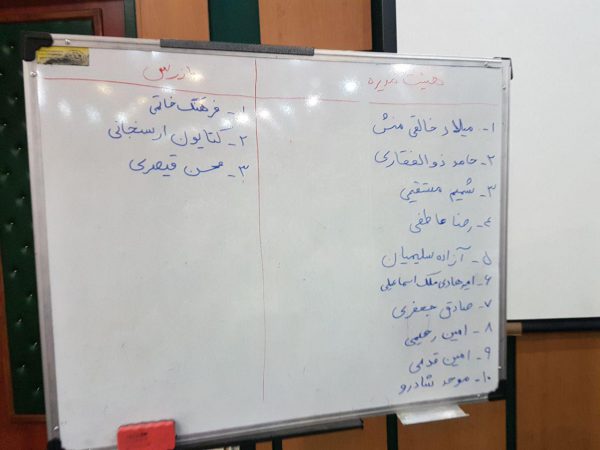 هیئت مدیره
۱- میلاد خالقی منش
۲- حامد ذوالفقاری
۳- شمیم مستقیمی
۴- رضا عاطفی
۵- آزاده سلیمیان
۶- امیرهادی ملک اسماعیلی
۷- صادق جعفری
۸- امین رحیمی
۹- امین قدمی
۱۰- موحد شادرو
بازرس
۱- فرهنگ خاتمی
۲- کتایون ارسنجانی
۳- محسن قیصری